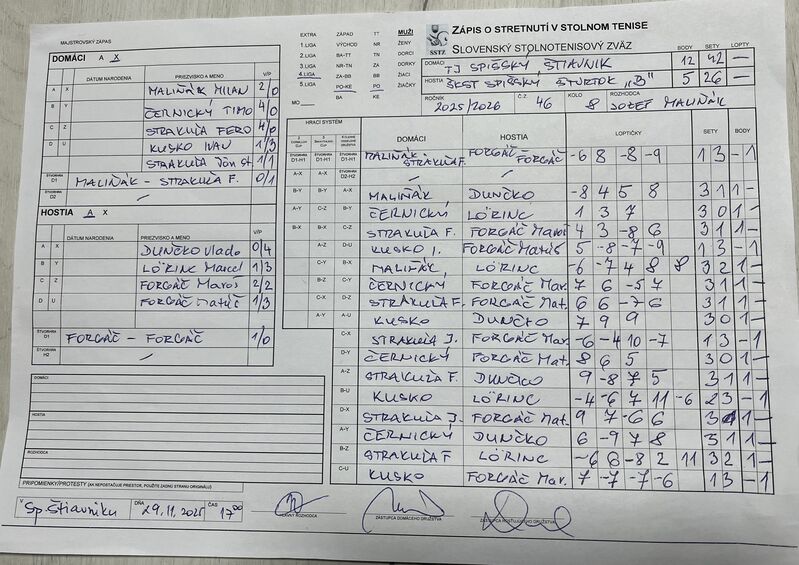 MAJSTROVSKÝ ZÁPAS
DOMÁCI A X
DÁTUM NARODENIA PRIEZVISKO A MENO V/P
A X MALIŇÁK MILAN 2/0
B Y ČERNICKÝ TIMO 4/0
C Z STRAKUĽA FERO 4/0
D U KUSKO IVAN 1/3
STRAKUĽA Ján st. 1/1
ŠTVORHRA D1 MALIŇÁK - STRAKUĽA F. 0/1
ŠTVORHRA D2 —
HOSTIA A X
DÁTUM NARODENIA PRIEZVISKO A MENO V/P
A X DUNČKO Vlado 0/4
B Y LÖRINC Marcel 1/3
C Z FORGÁČ Maroš 2/2
D U FORGÁČ Matúš 1/3
ŠTVORHRA H1 FORGÁČ - FORGÁČ 1/0
ŠTVORHRA H2 —
DOMÁCI
HOSTIA
ROZHODCA
PRIPOMIENKY/PROTESTY (AK NEPOSTAČUJE PRIESTOR, POUŽITE ZADNÚ STRANU ORIGINÁLU)
V Sp. Štiavniku DŇA 29.11.2025 ČAS 17:00
HLAVNÝ ROZHODCA
ZÁSTUPCA DOMÁCEHO DRUŽSTVA
ZÁSTUPCA HOSŤUJÚCEHO DRUŽSTVA
EXTRA ZÁPAD TT MUŽI
1.LIGA VÝCHOD NR ŽENY
2.LIGA BA-TT TN DORCI
3.LIGA NR-TN ZA DORKY
4.LIGA ZA-BB BB ŽIACI
5.LIGA PO-KE PO ŽIAČKY
MO BA KE
SSTZ
ZÁPIS O STRETNUTÍ V STOLNOM TENISE
SLOVENSKÝ STOLNOTENISOVÝ ZVÄZ
BODY SETY LOPTY
DOMÁCI TJ SPIŠSKÝ ŠTIAVNIK 12 42 —
HOSTIA ŠKST SPIŠSKÝ ŠTVRTOK "B" 5 26 —
ROČNÍK 2025/2026 Č.Z. 46 KOLO 8 ROZHODCA JOZEF MALIŇÁK
HRACÍ SYSTÉM DOMÁCI HOSTIA LOPTIČKY SETY BODY
D1-H1 D1-H1 D1-H1 MALIŇÁK - STRAKUĽA F. FORGÁČ - FORGÁČ -6 8 -8 -9 1 3 - 1
A-X A-X D2-H2 — —
B-Y B-Y A-X MALIŇÁK DUNČKO -8 4 5 8 3 1 1 -
A-Y C-Z B-Y ČERNICKÝ LÖRINC 1 3 7 3 0 1 -
B-X B-X C-Z STRAKUĽA F. FORGÁČ Maroš 4 3 -8 6 3 1 1 -
A-Z D-U KUSKO I. FORGÁČ Matúš 5 -8 -7 -9 1 3 - 1
C-Y A-Y MALIŇÁK LÖRINC -6 -7 4 8 8 3 2 1 -
B-Z B-Z ČERNICKÝ FORGÁČ Mar. 7 6 -5 7 3 1 1 -
C-X C-U STRAKUĽA F. FORGÁČ Mat. 6 6 -7 6 3 1 1 -
A-Y D-X KUSKO DUNČKO 7 9 9 3 0 1 -
C-X STRAKUĽA J. FORGÁČ Mar. -6 -4 10 -7 1 3 - 1
D-Y ČERNICKÝ FORGÁČ Mat. 8 6 5 3 0 1 -
A-Z STRAKUĽA F. DUNČKO 9 -8 7 5 3 1 1 -
B-U KUSKO LÖRINC -4 -6 7 11 -6 2 3 - 1
D-X STRAKUĽA J. FORGÁČ Mat. 9 7 -6 6 3 1 1 -
A-Y ČERNICKÝ DUNČKO 6 -9 7 8 3 1 1 -
B-Z STRAKUĽA F LÖRINC -6 6 -8 2 11 3 2 1 -
C-U KUSKO FORGÁČ Mar. 7 -7 -7 -6 1 3 - 1